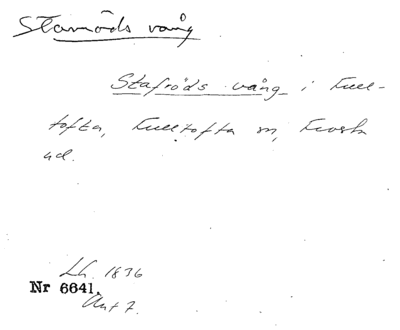 Stamöds vång
Stafröds vång i Full-
tofta, Fulltofta sn, Frosta
hd.
Lh. 1836
Nr 6641.
Akt 7.